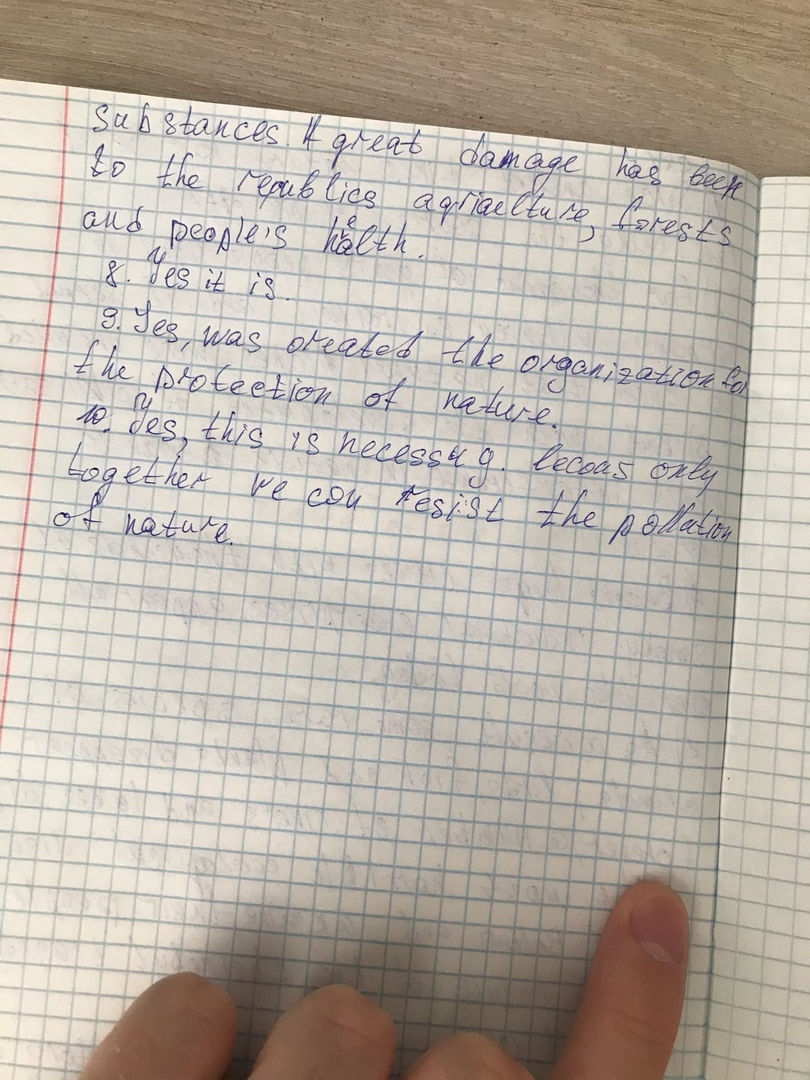 substances. A great damage has been
to the republics agriaelture, forests
and people's health.
8. Yes it is.
9. Yes, was created the organization for
the protection of nature.
10. Yes, this is necessary. becoas only
together we can resist the pollation
of nature.